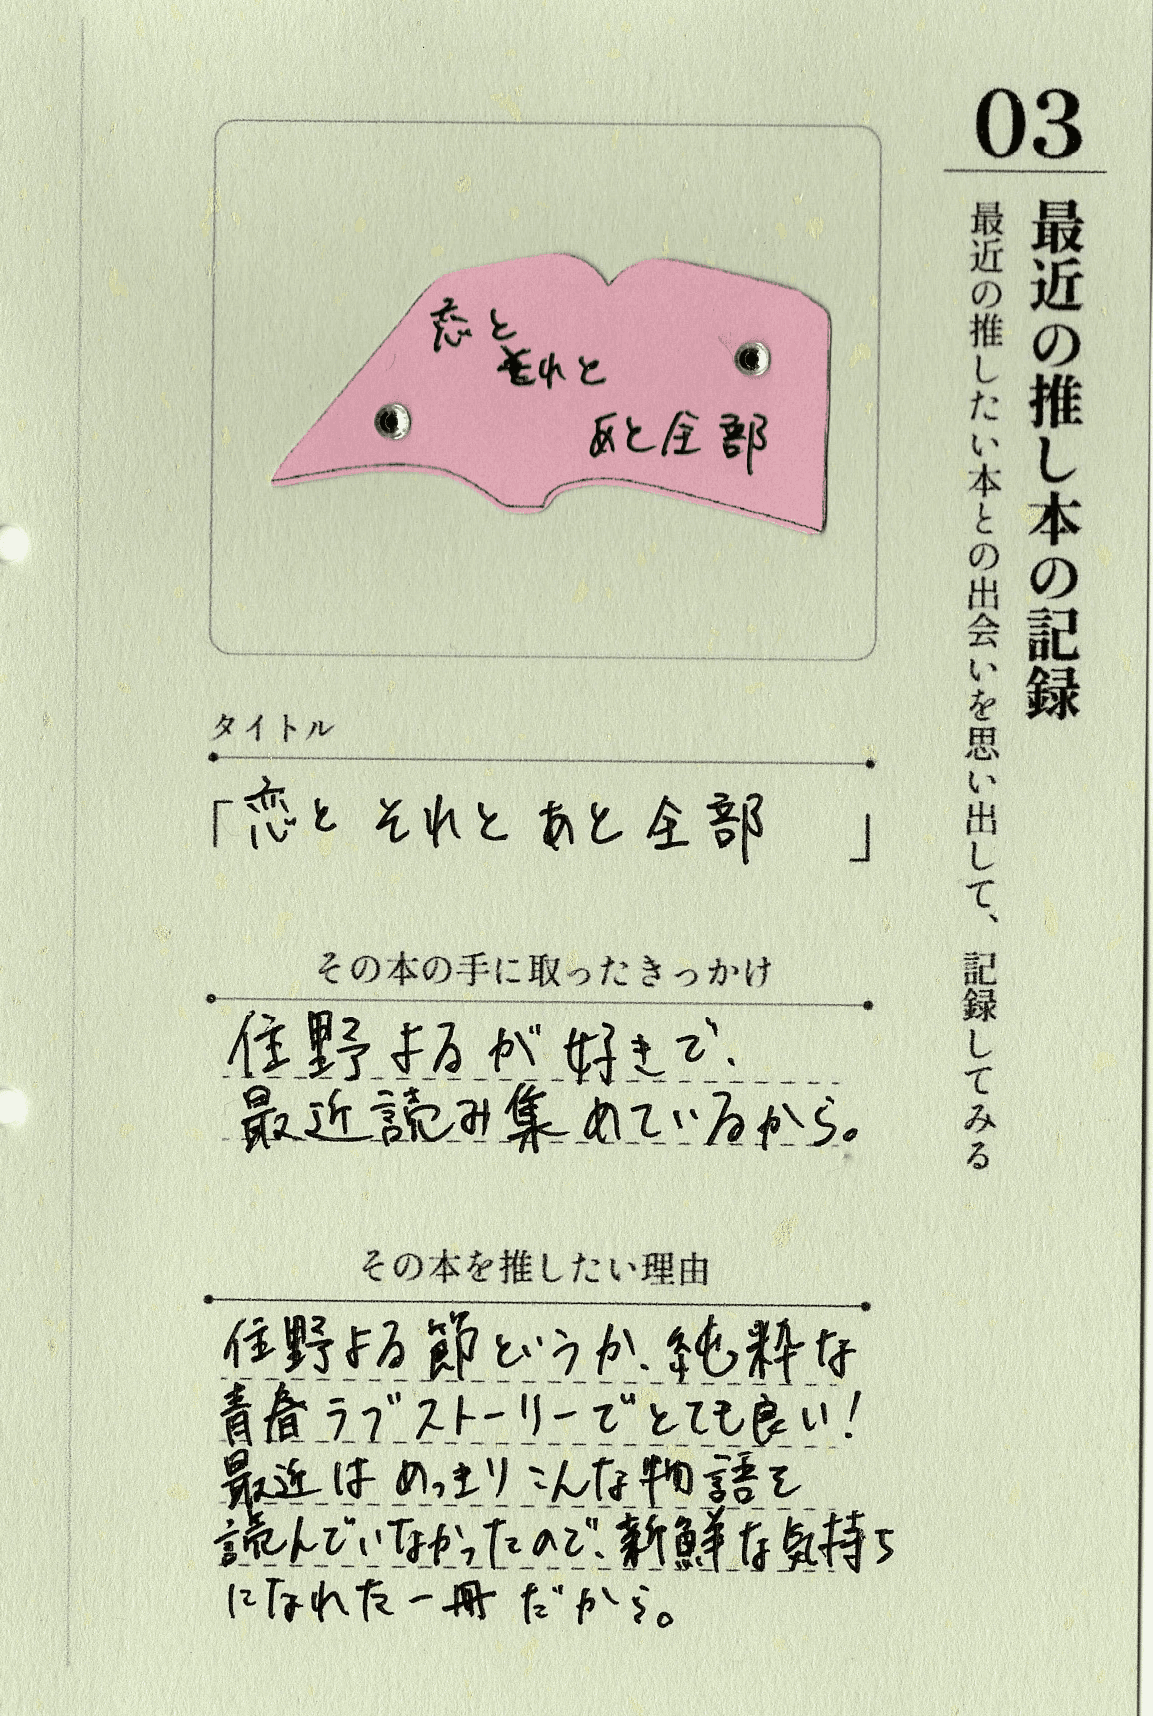 03
最近の推し本の記録
最近の推したい本との出会いを思い出して、記録してみる
恋と
それと
あと全部
タイトル
「恋と それと あと 全部 」
その本の手に取ったきっかけ
住野よるが好きで、
最近読み集めているから。
その本を推したい理由
住野よる節というか、純粋な
青春ラブストーリーでとても良い!
最近はめっきりこんな物語を
読んでいなかったので、新鮮な気持ち
になれた一冊だから。